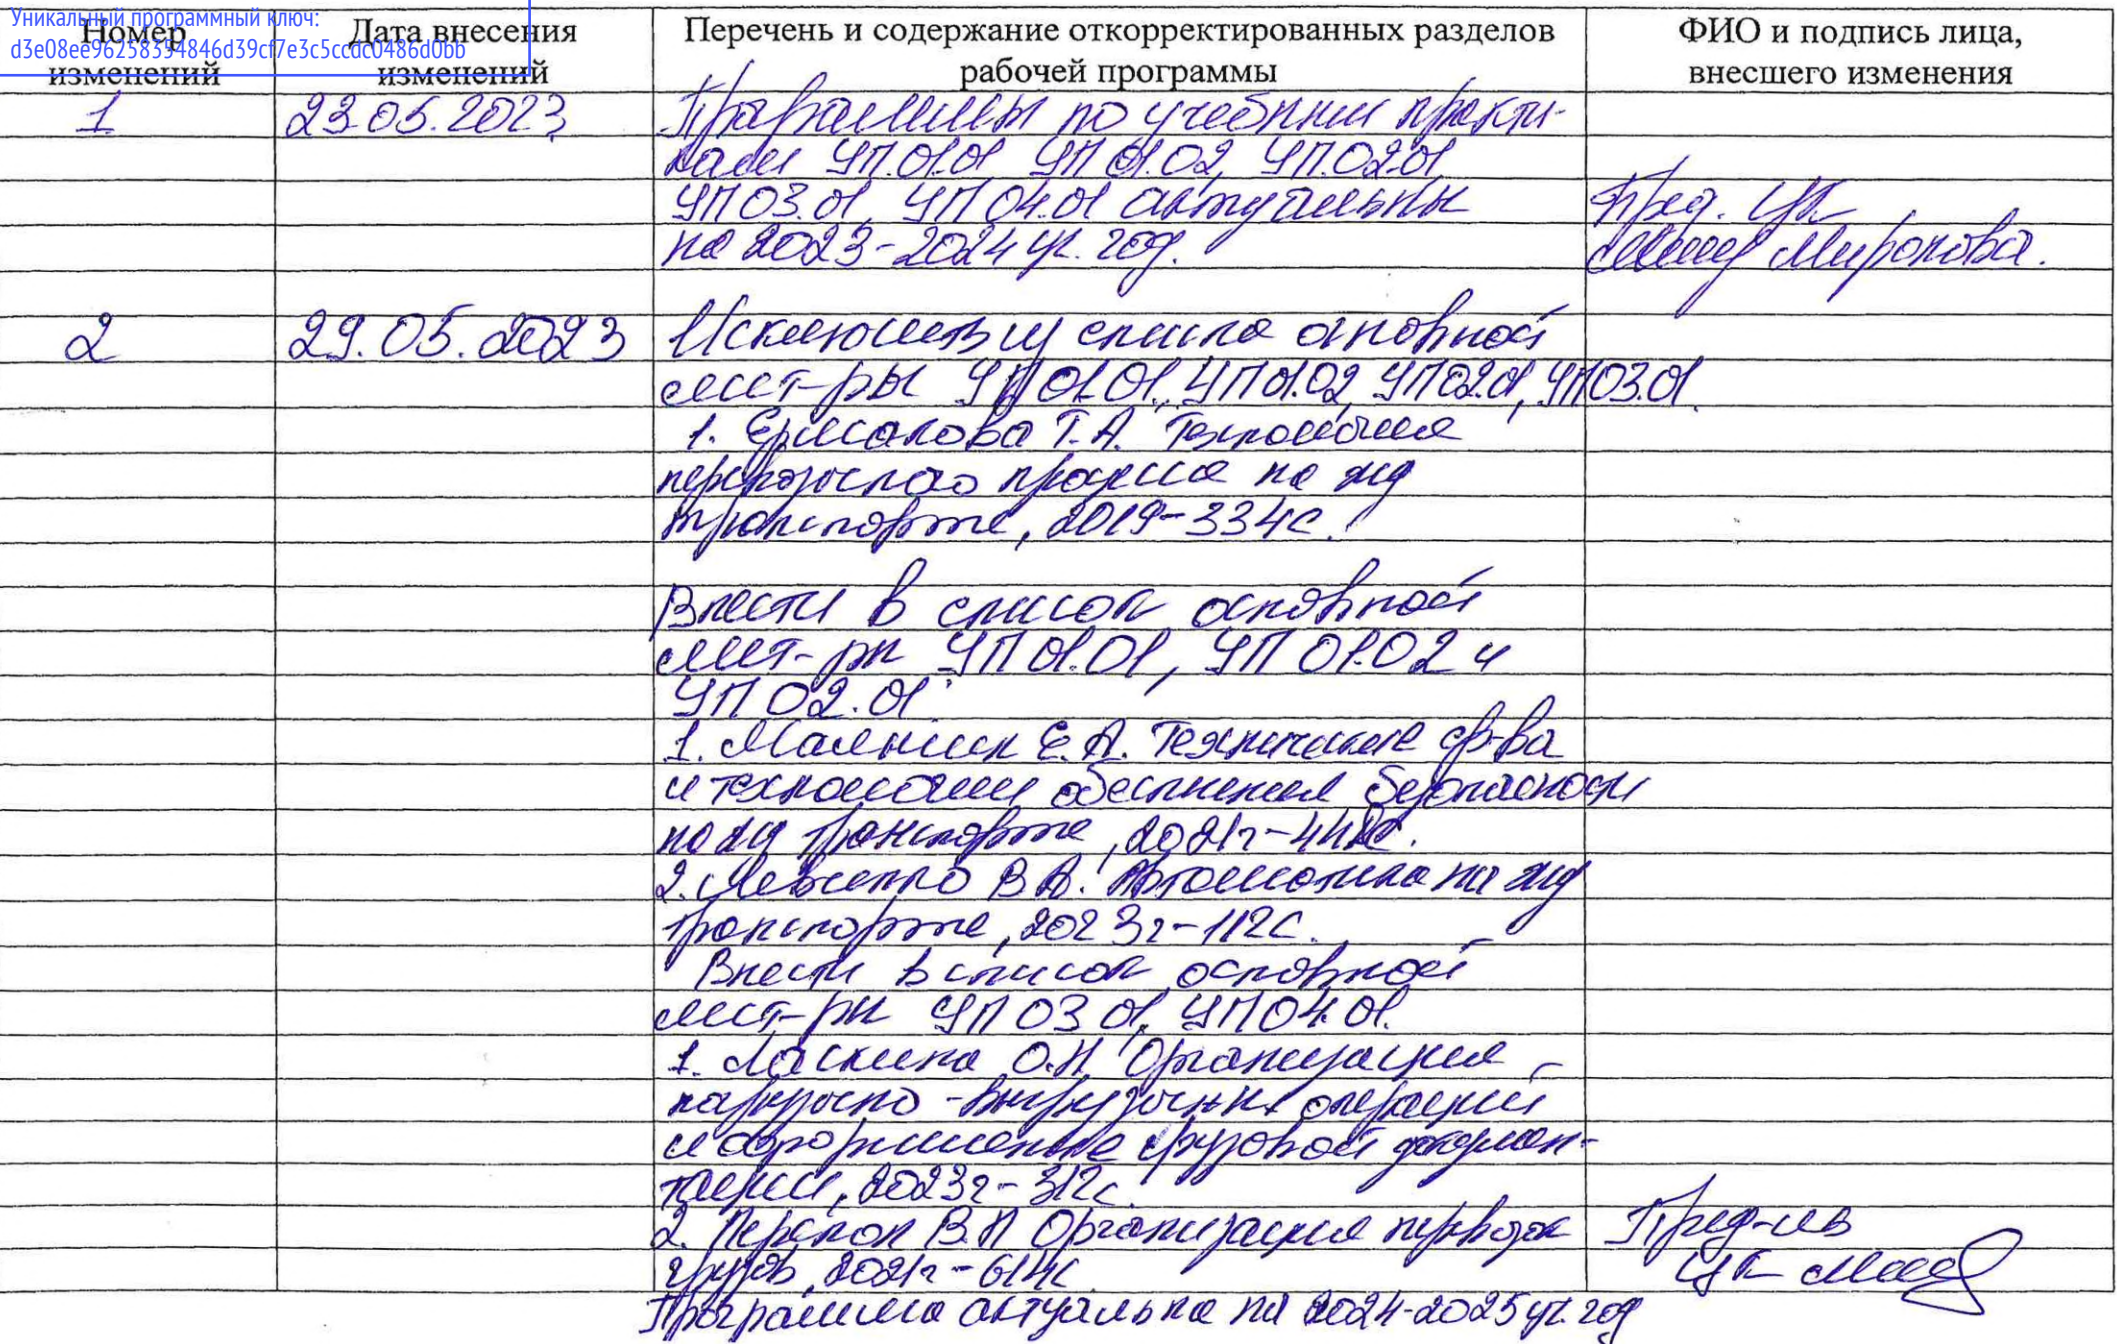 Уникальный программный ключ:
d3e08ee96258394846d39cf7e3c5ccdc0486d0bb
Номер изменений
Дата внесения изменений
Перечень и содержание откорректированных разделов рабочей программы
ФИО и подпись лица, внесшего изменения
1
23.05.2023
Программы по учебным практи-
кам УП.01.01 УП 01.02, УП.02.01,
УП 03.01, УП 04.01 актуальны
Пред. ЦК
на 2023-2024 уч. год.
Миронова.
2
29.05.2023
Исключить из списка основной
лит-ры УП 01.01, УП 01.02, УП 02.01, УП 03.01
1. Ермакова Т.А. Технология
перевозочного процесса на жд
транспорте, 2019-334с.
Внести в список основной
лит-ры УП 01.01, УП 01.02 и
УП 02.01
1. Е.А. Технические ср-ва
и технологии обеспечения безопасности
на жд транспорте, 2021г-
2. В.А. Автоматика на жд
транспорте, 2023г-112с.
Внести в список основной
лит-ры УП 03 01, УП 04.01.
1. Ласкина О.Н. Организация
погрузочно-выгрузочных операций
и оформление грузовой докумен-
тации, 2023г-312с.
2. Перепон В.П Организация перевозок
Пред-ль
грузов, 2021г-614с
ЦК
Программа актуальна на 2024-2025 уч. год